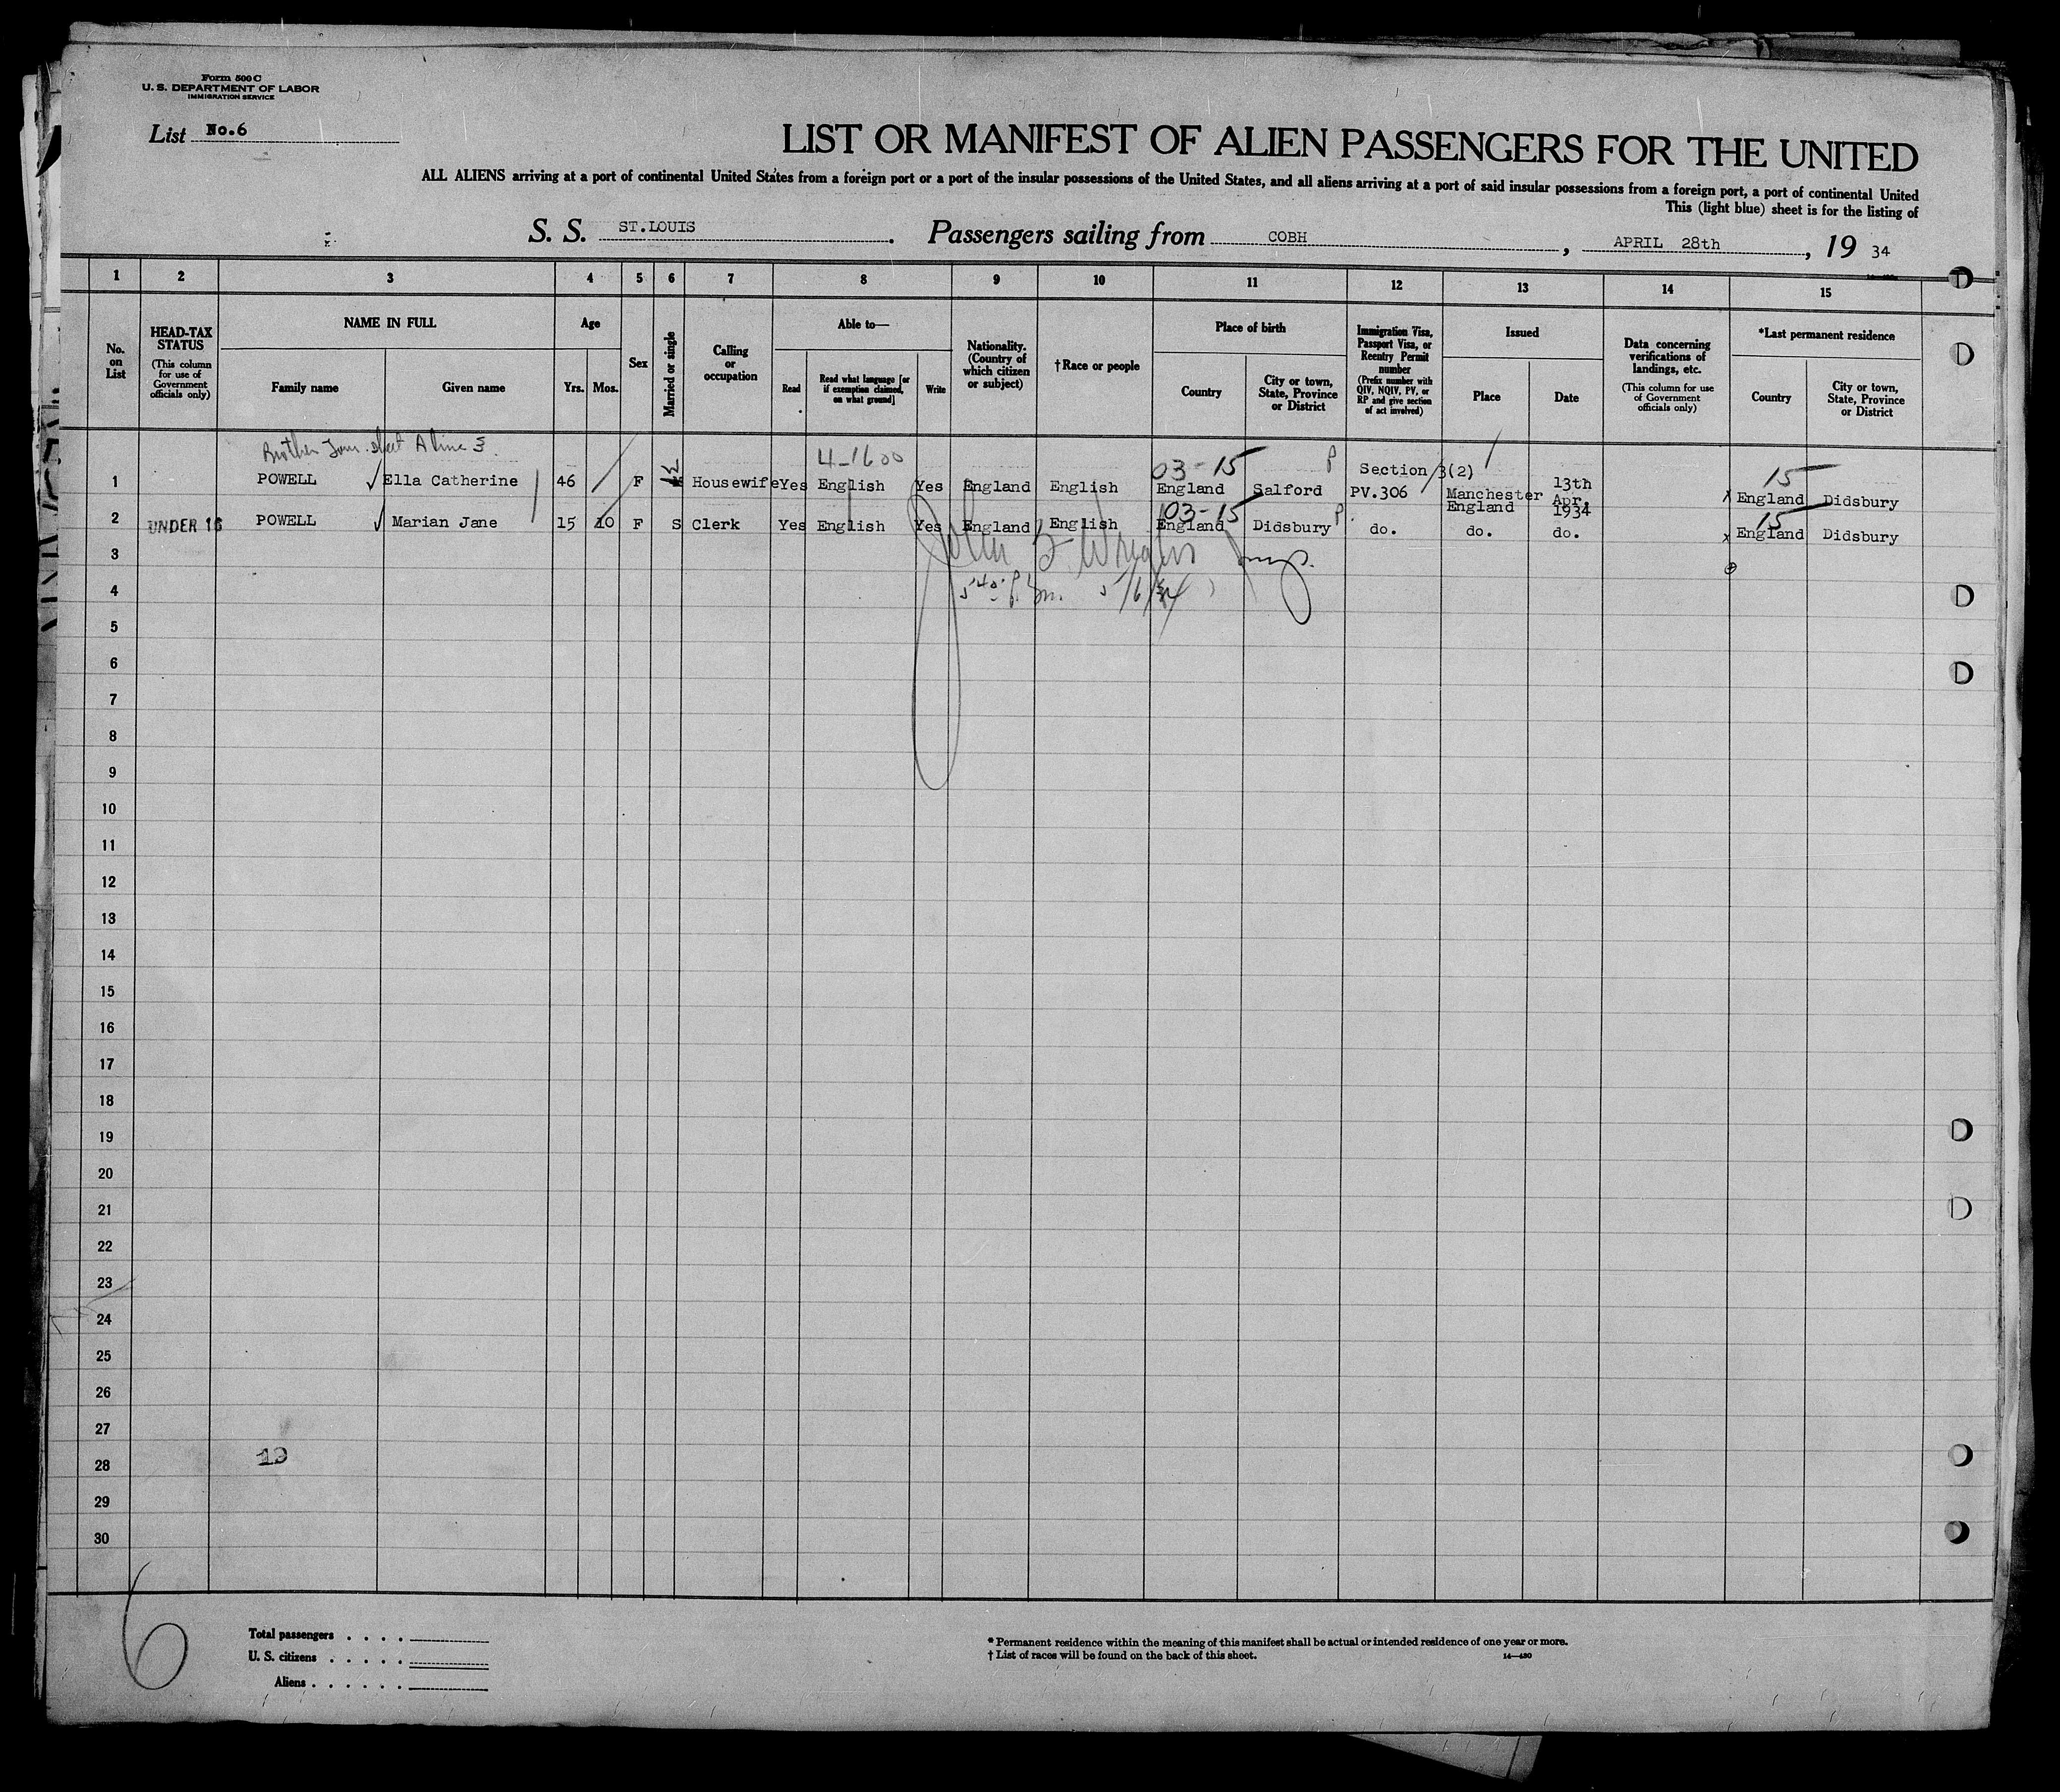 Form 500 C
U. S. DEPARTMENT OF LABOR
IMMIGRATION SERVICE
List No.6
LIST OR MANIFEST OF ALIEN PASSENGERS FOR THE UNITED
ALL ALIENS arriving at a port of continental United States from a foreign port or a port of the insular possessions of the United States, and all aliens arriving at a port of said insular possessions from a foreign port, a port of continental United
This (light blue) sheet is for the listing of
S. S. ST.LOUIS . Passengers sailing from COBH , APRIL 28th , 19 34
1 2 3 4 5 6 7 8 9 10 11 12 13 14 15
No. on List
HEAD-TAX STATUS
(This column for use of Government officials only)
NAME IN FULL
Family name
Given name
Age
Yrs.
Mos.
Sex
Married or single
Calling or occupation
Able to—
Read
Read what language [or if exemption claimed, on what ground]
Write
Nationality. (Country of which citizen or subject)
†Race or people
Place of birth
Country
City or town, State, Province or District
Immigration Visa, Passport Visa, or Reentry Permit number
(Prefix number with QIV, NQIV, PV, or RP and give section of act involved)
Issued
Place
Date
Data concerning verifications of landings, etc.
(This column for use of Government officials only)
*Last permanent residence
Country
City or town, State, Province or District
Brother sheet A line 3
4-1600 03-15 P Section 3(2) 15
1 POWELL Ella Catherine 46 F Housewife Yes English Yes England English England Salford PV.306 Manchester England 13th Apr. 1934 x England Didsbury
03-15 P 15
2 UNDER 16 POWELL Marian Jane 15 10 F S Clerk Yes English Yes England English England Didsbury do. do. do. x England Didsbury
3
John Wright Insp.
4
5 40 P.m. 5/6/34
5
6
7
8
9
10
11
12
13
14
15
16
17
18
19
20
21
22
23
24
25
26
27
28
19
29
30
6
Total passengers . . . .
U. S. citizens . . . . .
Aliens . . . . . .
* Permanent residence within the meaning of this manifest shall be actual or intended residence of one year or more.
† List of races will be found on the back of this sheet.
14—430